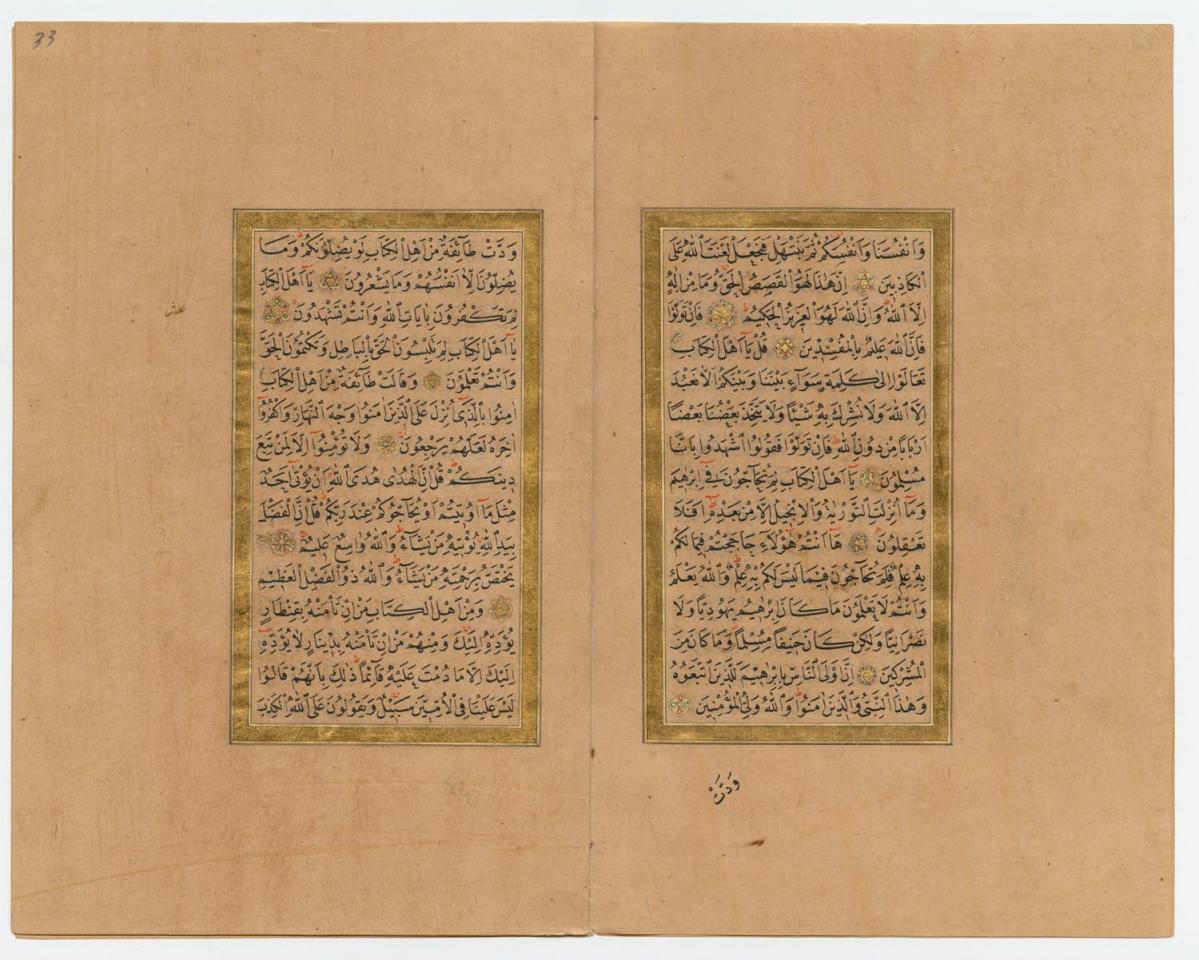 وَاَنْفُسَنَا وَاَنْفُسَكُمْ ثُمَّ نَبْتَهِلْ فَنَجْعَلْ لَعْنَتَ اللّٰهِ عَلَى
الْكَاذِبِينَ اِنَّ هٰذَا لَهُوَ الْقَصَصُ الْحَقُّ وَمَا مِنْ اِلٰهٍ
اِلَّا اللّٰهُ وَاِنَّ اللّٰهَ لَهُوَ الْعَزِيزُ الْحَكِيمُ فَاِنْ تَوَلَّوْا
فَاِنَّ اللّٰهَ عَلِيمٌ بِالْمُفْسِدِينَ قُلْ يَآ اَهْلَ الْكِتَابِ
تَعَالَوْا اِلٰى كَلِمَةٍ سَوَآءٍ بَيْنَنَا وَبَيْنَكُمْ اَلَّا نَعْبُدَ
اِلَّا اللّٰهَ وَلَا نُشْرِكَ بِهٖ شَيْئًا وَلَا يَتَّخِذَ بَعْضُنَا بَعْضًا
اَرْبَابًا مِنْ دُونِ اللّٰهِ فَاِنْ تَوَلَّوْا فَقُولُوا اشْهَدُوا بِاَنَّا
مُسْلِمُونَ يَآ اَهْلَ الْكِتَابِ لِمَ تُحَآجُّونَ فِىٓ اِبْرٰهِيمَ
وَمَآ اُنْزِلَتِ التَّوْرٰيةُ وَالْاِنْجِيلُ اِلَّا مِنْ بَعْدِهٖ اَفَلَا
تَعْقِلُونَ هَآ اَنْتُمْ هٰٓؤُلَآءِ حَاجَجْتُمْ فِيمَا لَكُمْ
بِهٖ عِلْمٌ فَلِمَ تُحَآجُّونَ فِيمَا لَيْسَ لَكُمْ بِهٖ عِلْمٌ وَاللّٰهُ يَعْلَمُ
وَاَنْتُمْ لَا تَعْلَمُونَ مَا كَانَ اِبْرٰهِيمُ يَهُودِيًّا وَلَا
نَصْرَانِيًّا وَلٰكِنْ كَانَ حَنِيفًا مُسْلِمًا وَمَا كَانَ مِنَ
الْمُشْرِكِينَ اِنَّ اَوْلَى النَّاسِ بِاِبْرٰهِيمَ لَلَّذِينَ اتَّبَعُوهُ
وَهٰذَا النَّبِىُّ وَالَّذِينَ اٰمَنُوا وَاللّٰهُ وَلِىُّ الْمُؤْمِنِينَ
وَدَّتْ
33
وَدَّتْ طَآئِفَةٌ مِنْ اَهْلِ الْكِتَابِ لَوْ يُضِلُّونَكُمْ وَمَا
يُضِلُّونَ اِلَّآ اَنْفُسَهُمْ وَمَا يَشْعُرُونَ يَآ اَهْلَ الْكِتَابِ
لِمَ تَكْفُرُونَ بِاٰيَاتِ اللّٰهِ وَاَنْتُمْ تَشْهَدُونَ
يَآ اَهْلَ الْكِتَابِ لِمَ تَلْبِسُونَ الْحَقَّ بِالْبَاطِلِ وَتَكْتُمُونَ الْحَقَّ
وَاَنْتُمْ تَعْلَمُونَ وَقَالَتْ طَآئِفَةٌ مِنْ اَهْلِ الْكِتَابِ
اٰمِنُوا بِالَّذِىٓ اُنْزِلَ عَلَى الَّذِينَ اٰمَنُوا وَجْهَ النَّهَارِ وَاكْفُرُوٓا
اٰخِرَهُ لَعَلَّهُمْ يَرْجِعُونَ وَلَا تُؤْمِنُوٓا اِلَّا لِمَنْ تَبِعَ
دِينَكُمْ قُلْ اِنَّ الْهُدٰى هُدَى اللّٰهِ اَنْ يُؤْتٰىٓ اَحَدٌ
مِثْلَ مَآ اُوتِيتُمْ اَوْ يُحَآجُّوكُمْ عِنْدَ رَبِّكُمْ قُلْ اِنَّ الْفَضْلَ
بِيَدِ اللّٰهِ يُؤْتِيهِ مَنْ يَشَآءُ وَاللّٰهُ وَاسِعٌ عَلِيمٌ
يَخْتَصُّ بِرَحْمَتِهٖ مَنْ يَشَآءُ وَاللّٰهُ ذُو الْفَضْلِ الْعَظِيمِ
وَمِنْ اَهْلِ الْكِتَابِ مَنْ اِنْ تَأْمَنْهُ بِقِنْطَارٍ
يُؤَدِّهٖٓ اِلَيْكَ وَمِنْهُمْ مَنْ اِنْ تَأْمَنْهُ بِدِينَارٍ لَا يُؤَدِّهٖٓ
اِلَيْكَ اِلَّا مَا دُمْتَ عَلَيْهِ قَآئِمًا ذٰلِكَ بِاَنَّهُمْ قَالُوا
لَيْسَ عَلَيْنَا فِى الْاُمِّيّٖنَ سَبِيلٌ وَيَقُولُونَ عَلَى اللّٰهِ الْكَذِبَ